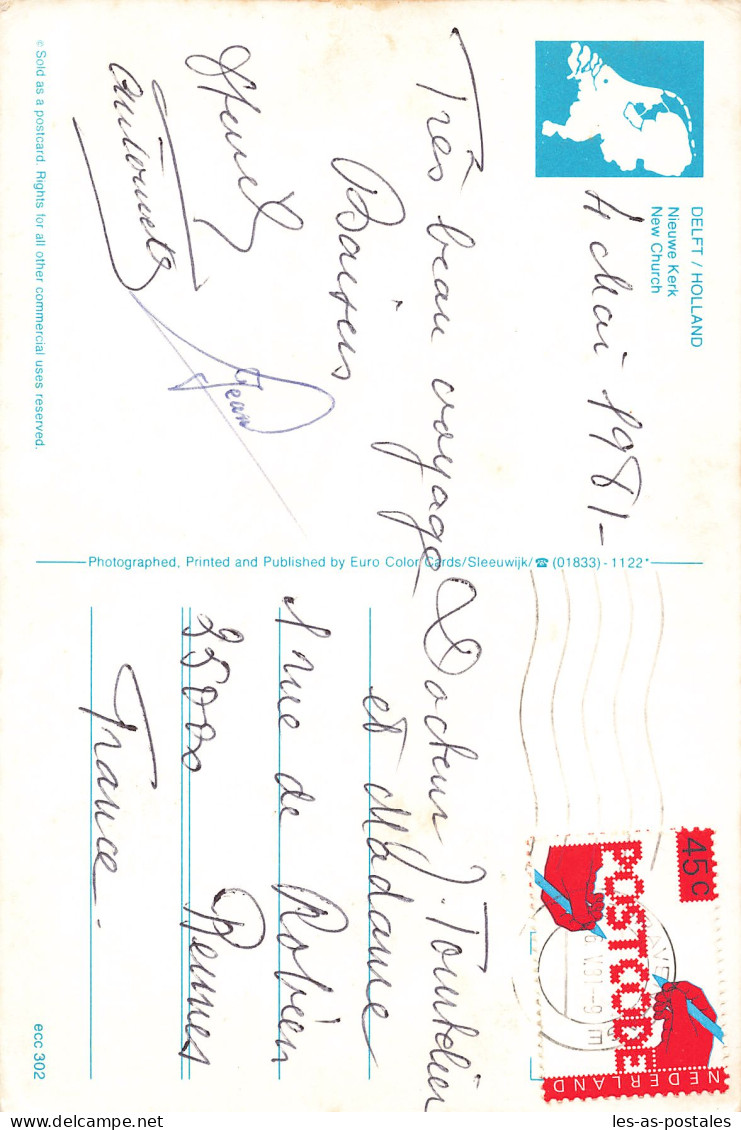 DELFT / HOLLAND
Nieuwe Kerk
New Church
4 Mai 1981-
Très beau voyage
Baisers
Jean
© Sold as a postcard. Rights for all other commercial uses reserved.
Photographed, Printed and Published by Euro Color Cards/Sleeuwijk/☎ (01833) - 1122*
45c
POSTCODE
NEDERLAND
Docteur J.
et Madame
1 rue de Robien
35000 Rennes
France -
ecc 302
les-as-postales